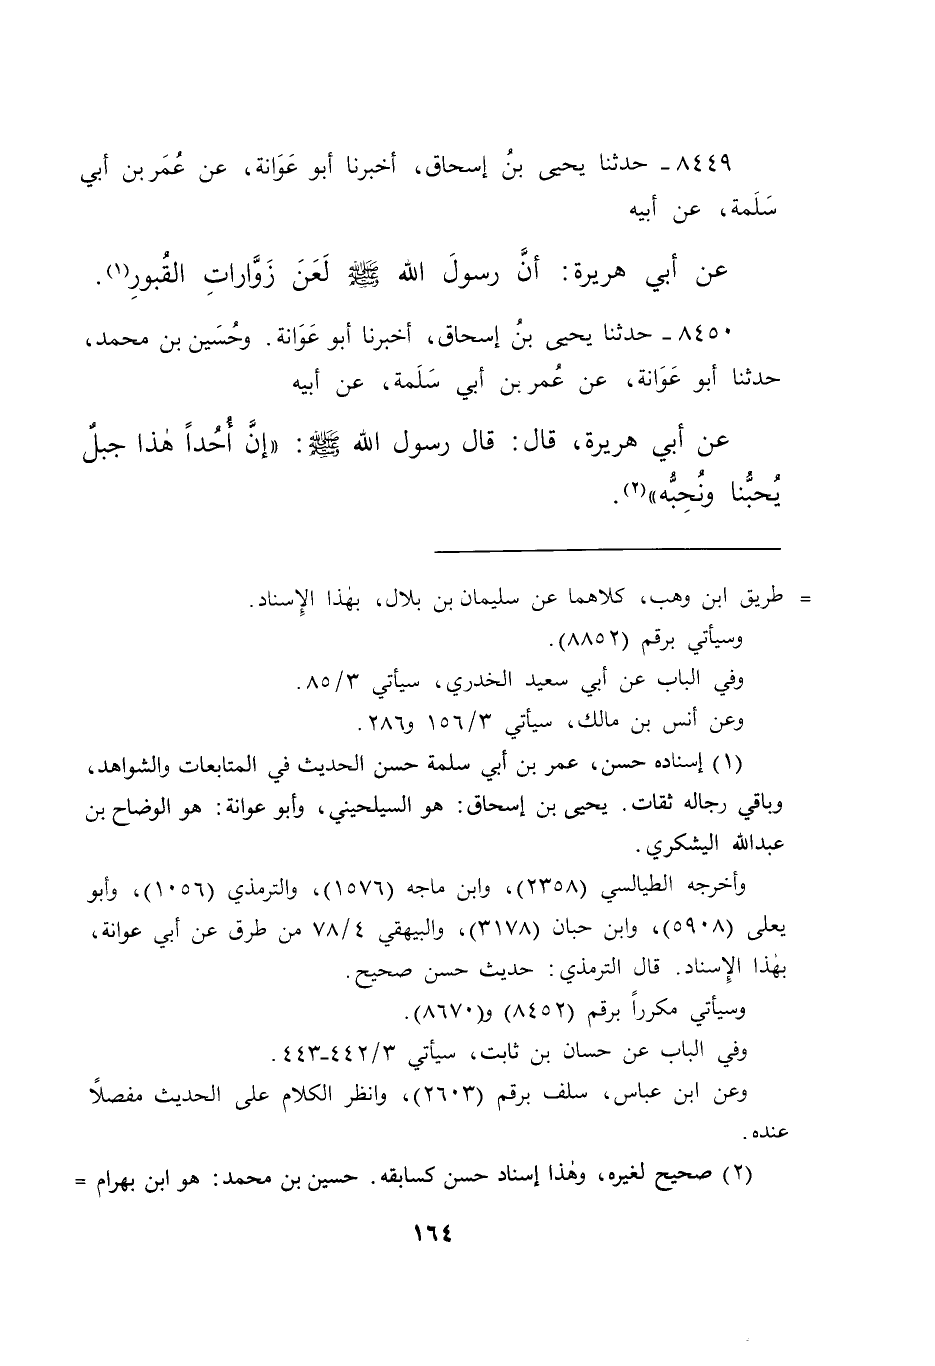 ٨٤٤٩ - حدثنا يحيى بنُ إسحاق، أخبرنا أبو عَوَانة، عن عُمَر بن أبي
سَلَمة، عن أبيه
عن أبي هريرة: أنَّ رسولَ الله ﷺ لَعَنَ زَوَّاراتِ القُبورِ(١).
٨٤٥٠ - حدثنا يحيى بنُ إسحاق، أخبرنا أبو عَوَانة. وحُسَين بن محمد،
حدثنا أبو عَوَانة، عن عُمر بن أبي سَلَمة، عن أبيه
عن أبي هريرة، قال: قال رسول الله ﷺ: «إنَّ أُحُداً هٰذا جبلٌ
يُحبُّنا ونُحِبُّه»(٢).
= طريق ابن وهب، كلاهما عن سليمان بن بلال، بهٰذا الإِسناد.
وسيأتي برقم (٨٨٥٢).
وفي الباب عن أبي سعيد الخدري، سيأتي ٨٥/٣.
وعن أنس بن مالك، سيأتي ١٥٦/٣ و٢٨٦.
(١) إسناده حسن، عمر بن أبي سلمة حسن الحديث في المتابعات والشواهد،
وباقي رجاله ثقات. يحيى بن إسحاق: هو السيلحيني، وأبو عوانة: هو الوضاح بن
عبدالله اليشكري.
وأخرجه الطيالسي (٢٣٥٨)، وابن ماجه (١٥٧٦)، والترمذي (١٠٥٦)، وأبو
يعلى (٥٩٠٨)، وابن حبان (٣١٧٨)، والبيهقي ٧٨/٤ من طرق عن أبي عوانة،
بهٰذا الإِسناد. قال الترمذي: حديث حسن صحيح.
وسيأتي مكرراً برقم (٨٤٥٢) و(٨٦٧٠).
وفي الباب عن حسان بن ثابت، سيأتي ٤٤٢/٣-٤٤٣.
وعن ابن عباس، سلف برقم (٢٦٠٣)، وانظر الكلام على الحديث مفصلاً
عنده.
(٢) صحيح لغيره، وهٰذا إسناد حسن كسابقه. حسين بن محمد: هو ابن بهرام =
١٦٤